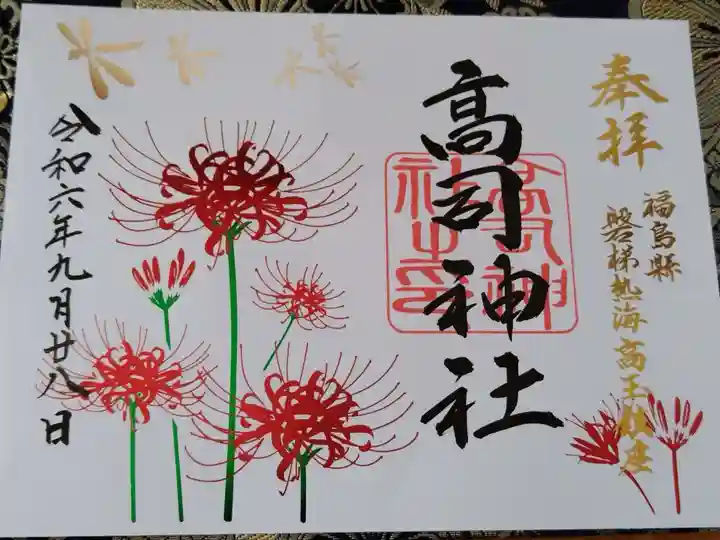 奉拝
福島縣
磐梯熱海高玉鎮座
高司神社
令和六年九月廿八日